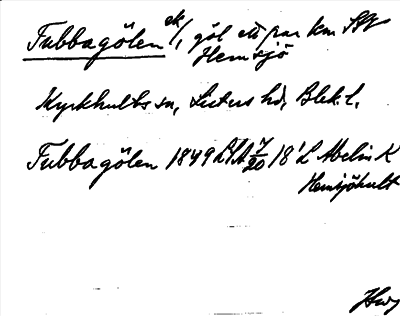 Tubbagölen ek/, göl ett par km SSV
Hemsjö
Kyrkhults sn, Listers hd, Blek. l.
Tubbagölen 1849 LSA 7/20 18 'L Abelin K
Hemsjökult